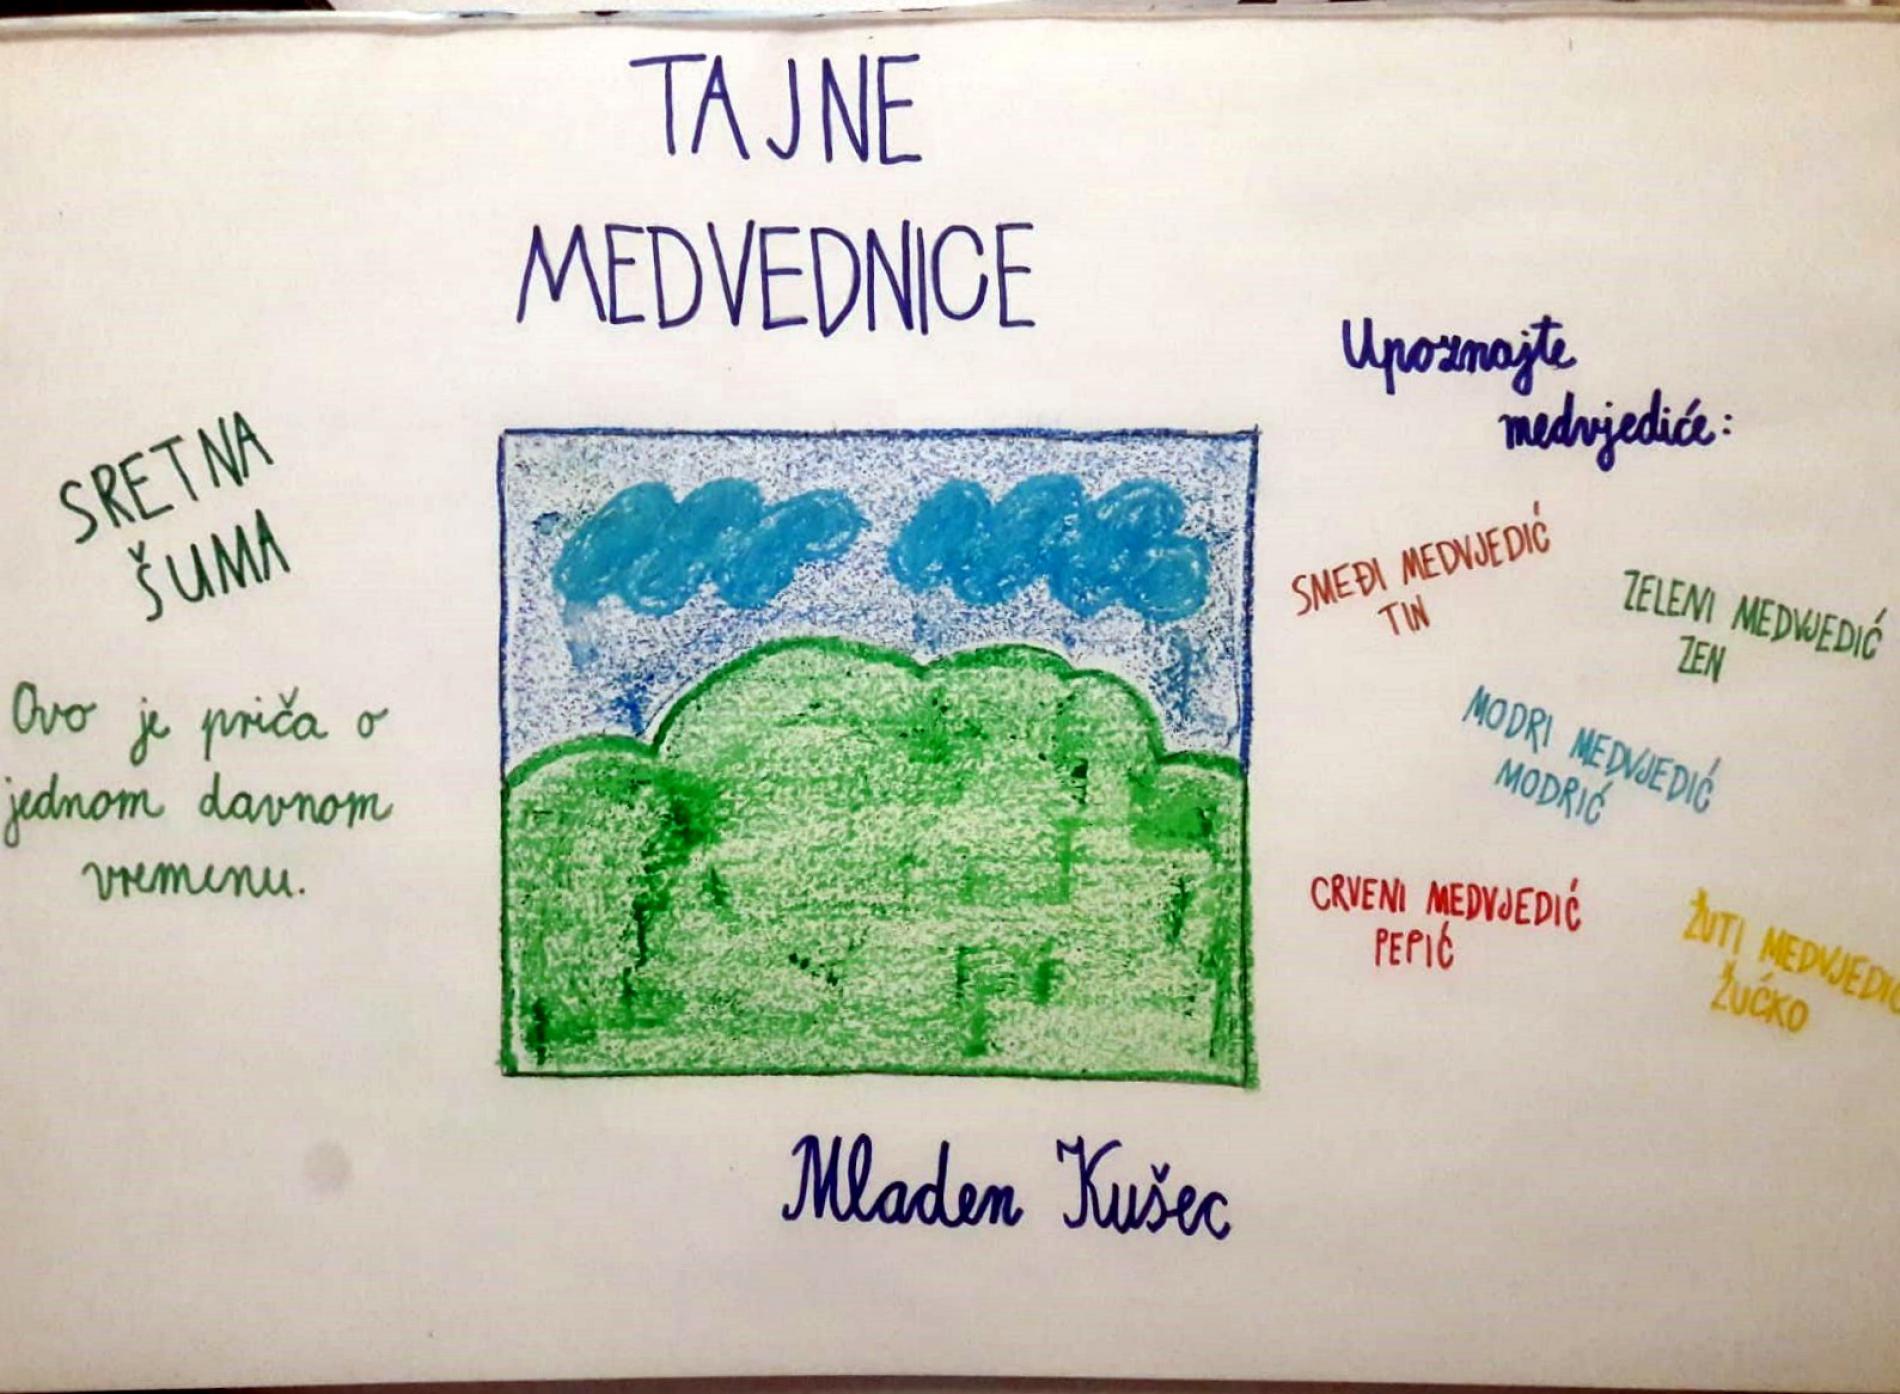 TAJNE
MEDVEDNICE
SRETNA
ŠUMA
Ovo je priča o
jednom davnom
vremenu.
Upoznajte
medvjediće:
SMEĐI MEDVJEDIĆ
TIN
ZELENI MEDVJEDIĆ
ZEN
MODRI MEDVJEDIĆ
MODRIĆ
CRVENI MEDVJEDIĆ
PEPIĆ
ŽUTI MEDVJEDIĆ
ŽUĆKO
Mladen Kušec